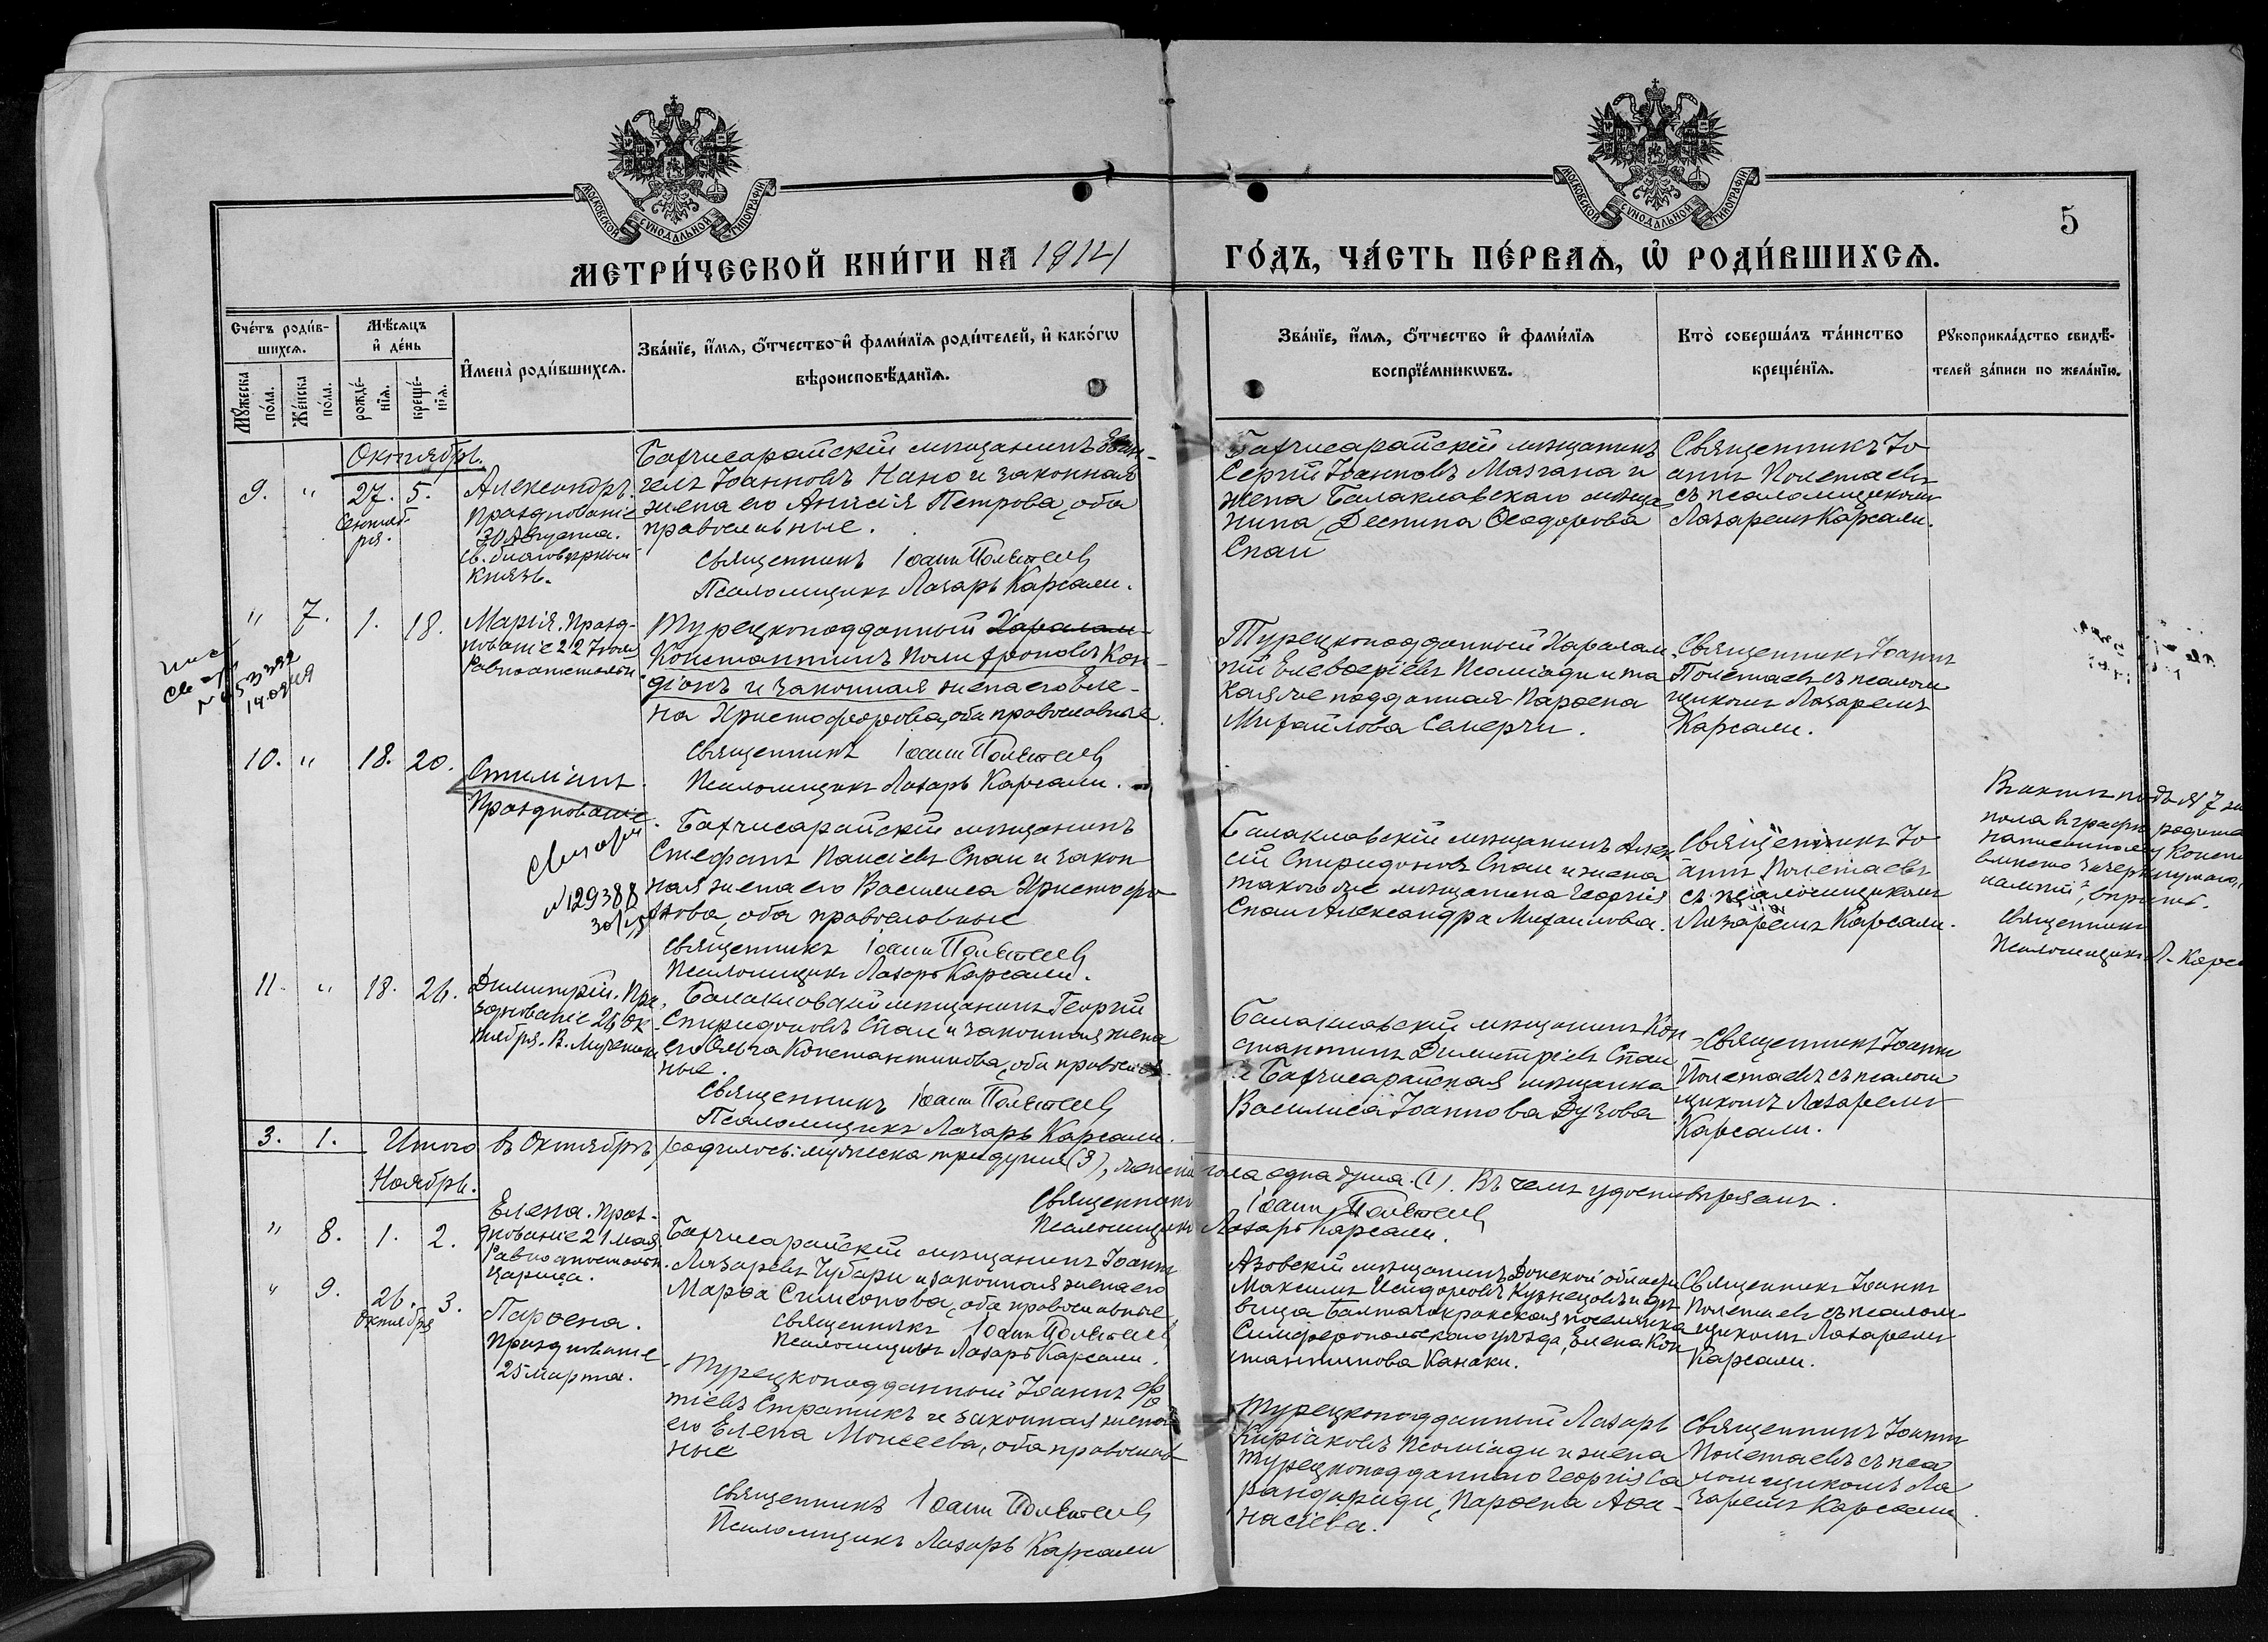 МОСКОВСКОЙ СѴНОДАЛЬНОЙ ТИПОГРАФІИ
МОСКОВСКОЙ СѴНОДАЛЬНОЙ ТИПОГРАФІИ
5
МЕТРИ́ЧЕСКОЙ КНИ́ГИ НА 1914 ГО́ДЪ, ЧА́СТЬ ПЕ́РВАѦ, Ѡ҆ РОДИ́ВШИХСѦ.
Сче́тъ роди́в-
шихсѧ.
Мꙋ́жеска по́ла.
Же́нска по́ла.
Мѣ́сѧцъ
и҆ де́нь
рожде́-
нїѧ.
креще́-
нїѧ.
И҆мена̀ роди́вшихсѧ.
Зва́нїе, и҆́мѧ, ѻ҆́тчество и҆ фами́лїѧ роди́телей, и҆ како́гѡ
вѣроисповѣ́данїѧ.
Зва́нїе, и҆́мѧ, ѻ҆́тчество и҆ фами́лїѧ
воспрїе́мникѡвъ.
Кто̀ соверша́лъ та́инство
креще́нїѧ.
Рꙋкоприкла́дство свидѣ́-
телей за́писи по жела́нїю.
Октябрь.
9. " 27. 5.
Сентяб-
ря.
Александръ.
Празднованіе
30 Августа.
Св. благовѣрный
Князь.
Бахчисарайскій мѣщанинъ
гелъ Іоанновъ Нано и законная
жена его Анисія Петрова, оба
православные.
Священникъ Іоаннъ Полѣтаевъ
Псаломщикъ Лазарь Карсали.
Бахчисарайскій мѣщанинъ
Сергій Іоанновъ Мазгана и
жена Балаклавскаго мѣща
нина Деспина Ѳеодорова
Спаи
Священникъ Іо
аннъ Полетаевъ
съ псаломщикомъ
Лазаремъ Карсали.
" 7. 1. 18.
Марія. Празд-
нованіе 22 Іюля
Равноапостольн
№ 653392
Турецкоподданный Харалам-
Константинъ Полихроновъ Кон-
діонъ и законная жена его Еле-
на Христофорова, оба православные.
Священникъ Іоаннъ Полѣтаевъ
Псаломщикъ Лазарь Карсали.
Турецкоподданный Харалам
пій Елевѳеріевъ Псоміади и та
кая же подданная Парѳена
Михайлова Семерчи.
Священникъ Іоаннъ
Полетаевъ съ псалом
щикомъ Лазаремъ
Карсали.
10. " 18. 20.
Стиліанъ.
Празднованіе
№ 29388
Бахчисарайскій мѣщанинъ
Стефанъ Паисіевъ Спаи и закон
ная жена его Василиса Христофо
рова, оба православные
Священникъ Іоаннъ Полѣтаевъ
Псаломщикъ Лазарь Карсали.
Балаклавскій мѣщанинъ Алек
сій Спиридоновъ Спаи и жена
такого же мѣщанина Георгія
Спаи Александра Михаилова.
Священникъ Іо
аннъ Полетаевъ
съ псаломщикомъ
Лазаремъ Карсали.
Въ актѣ подъ № 7
пола въ графѣ
написанному
вмѣсто зачеркнутаго
вѣрить.
Священникъ
Псаломщикъ Л. Карс
11. " 18. 26.
Димитрій. Пра
зднованіе 26 Ок-
тября. В. Мученикъ
Балаклавскій мѣщанинъ Георгій
Спиридоновъ Спаи и законная жена
его Ольга Константинова, оба православ
ные.
Священникъ Іоаннъ Полѣтаевъ
Псаломщикъ Лазарь Карсали.
Балаклавскій мѣщанинъ Кон
стантинъ Димитріевъ Спаи
и Бахчисарайская мѣщанка
Василиса Іоаннова Дузова
Священникъ Іоаннъ
Полетаевъ съ псалом
щикомъ Лазаремъ
Карсали.
3. 1. Итого въ Октябрѣ родилось: мужеска три души (3), женска пола одна душа. (1). Въ чемъ удостовѣряемъ.
Священникъ Іоаннъ Полѣтаевъ
Псаломщикъ Лазарь Карсали.
Ноябрь.
" 8. 1. 2.
Елена. Праз-
днованіе 21 мая
Равноапостольн.
Царица.
Бахчисарайскій мѣщанинъ Іоаннъ
Лазаревъ Чубари и законная жена его
Марѳа Симеонова, оба православные
Священникъ Іоаннъ Полѣтаевъ
Псаломщикъ Лазарь Карсали.
Азовскій мѣщанинъ Донской области
Максимъ Исидоровъ Кузнецовъ и дѣ
вица Балтачокракская поселянка
Симферопольскаго уѣзда, Елена Кон
стантинова Канаки.
Священникъ Іоаннъ
Полетаевъ съ псалом
щикомъ Лазаремъ
Карсали.
" 9. 26. 3.
Октября
Парѳена.
Празднованіе
25 Марта.
Турецкоподданный Іоаннъ Фо
тіевъ Стратикъ и законная жена
его Елена Моисеева, оба православ
ные
Священникъ Іоаннъ Полѣтаевъ
Псаломщикъ Лазарь Карсали
Турецкоподданный Лазарь
Киріаковъ Псоміади и жена
турецкоподданнаго Георгія Са
рандиди, Парѳена Аѳа-
насіева.
Священникъ Іоаннъ
Полетаевъ съ пса
ломщикомъ Ла
заремъ Карсали.